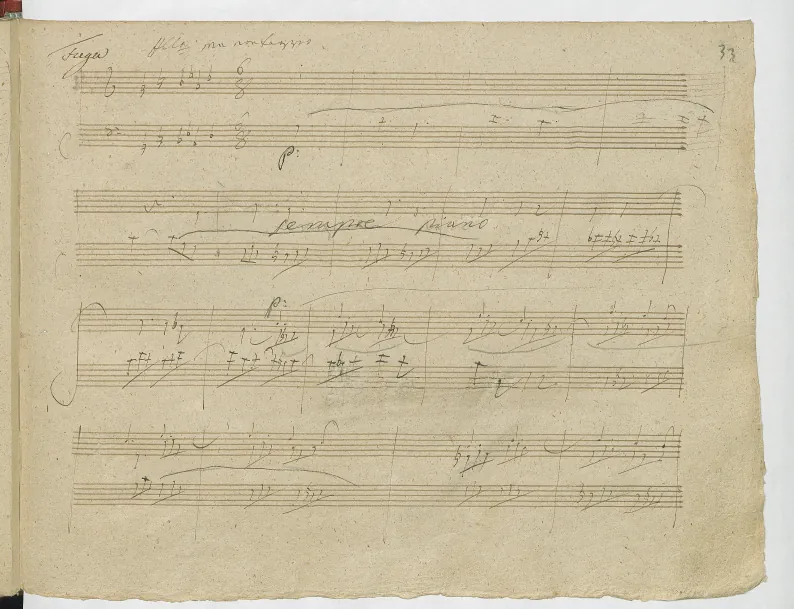 Fuga Allo ma non troppo.
33
6
8
6
8
p:
sempre piano
p: